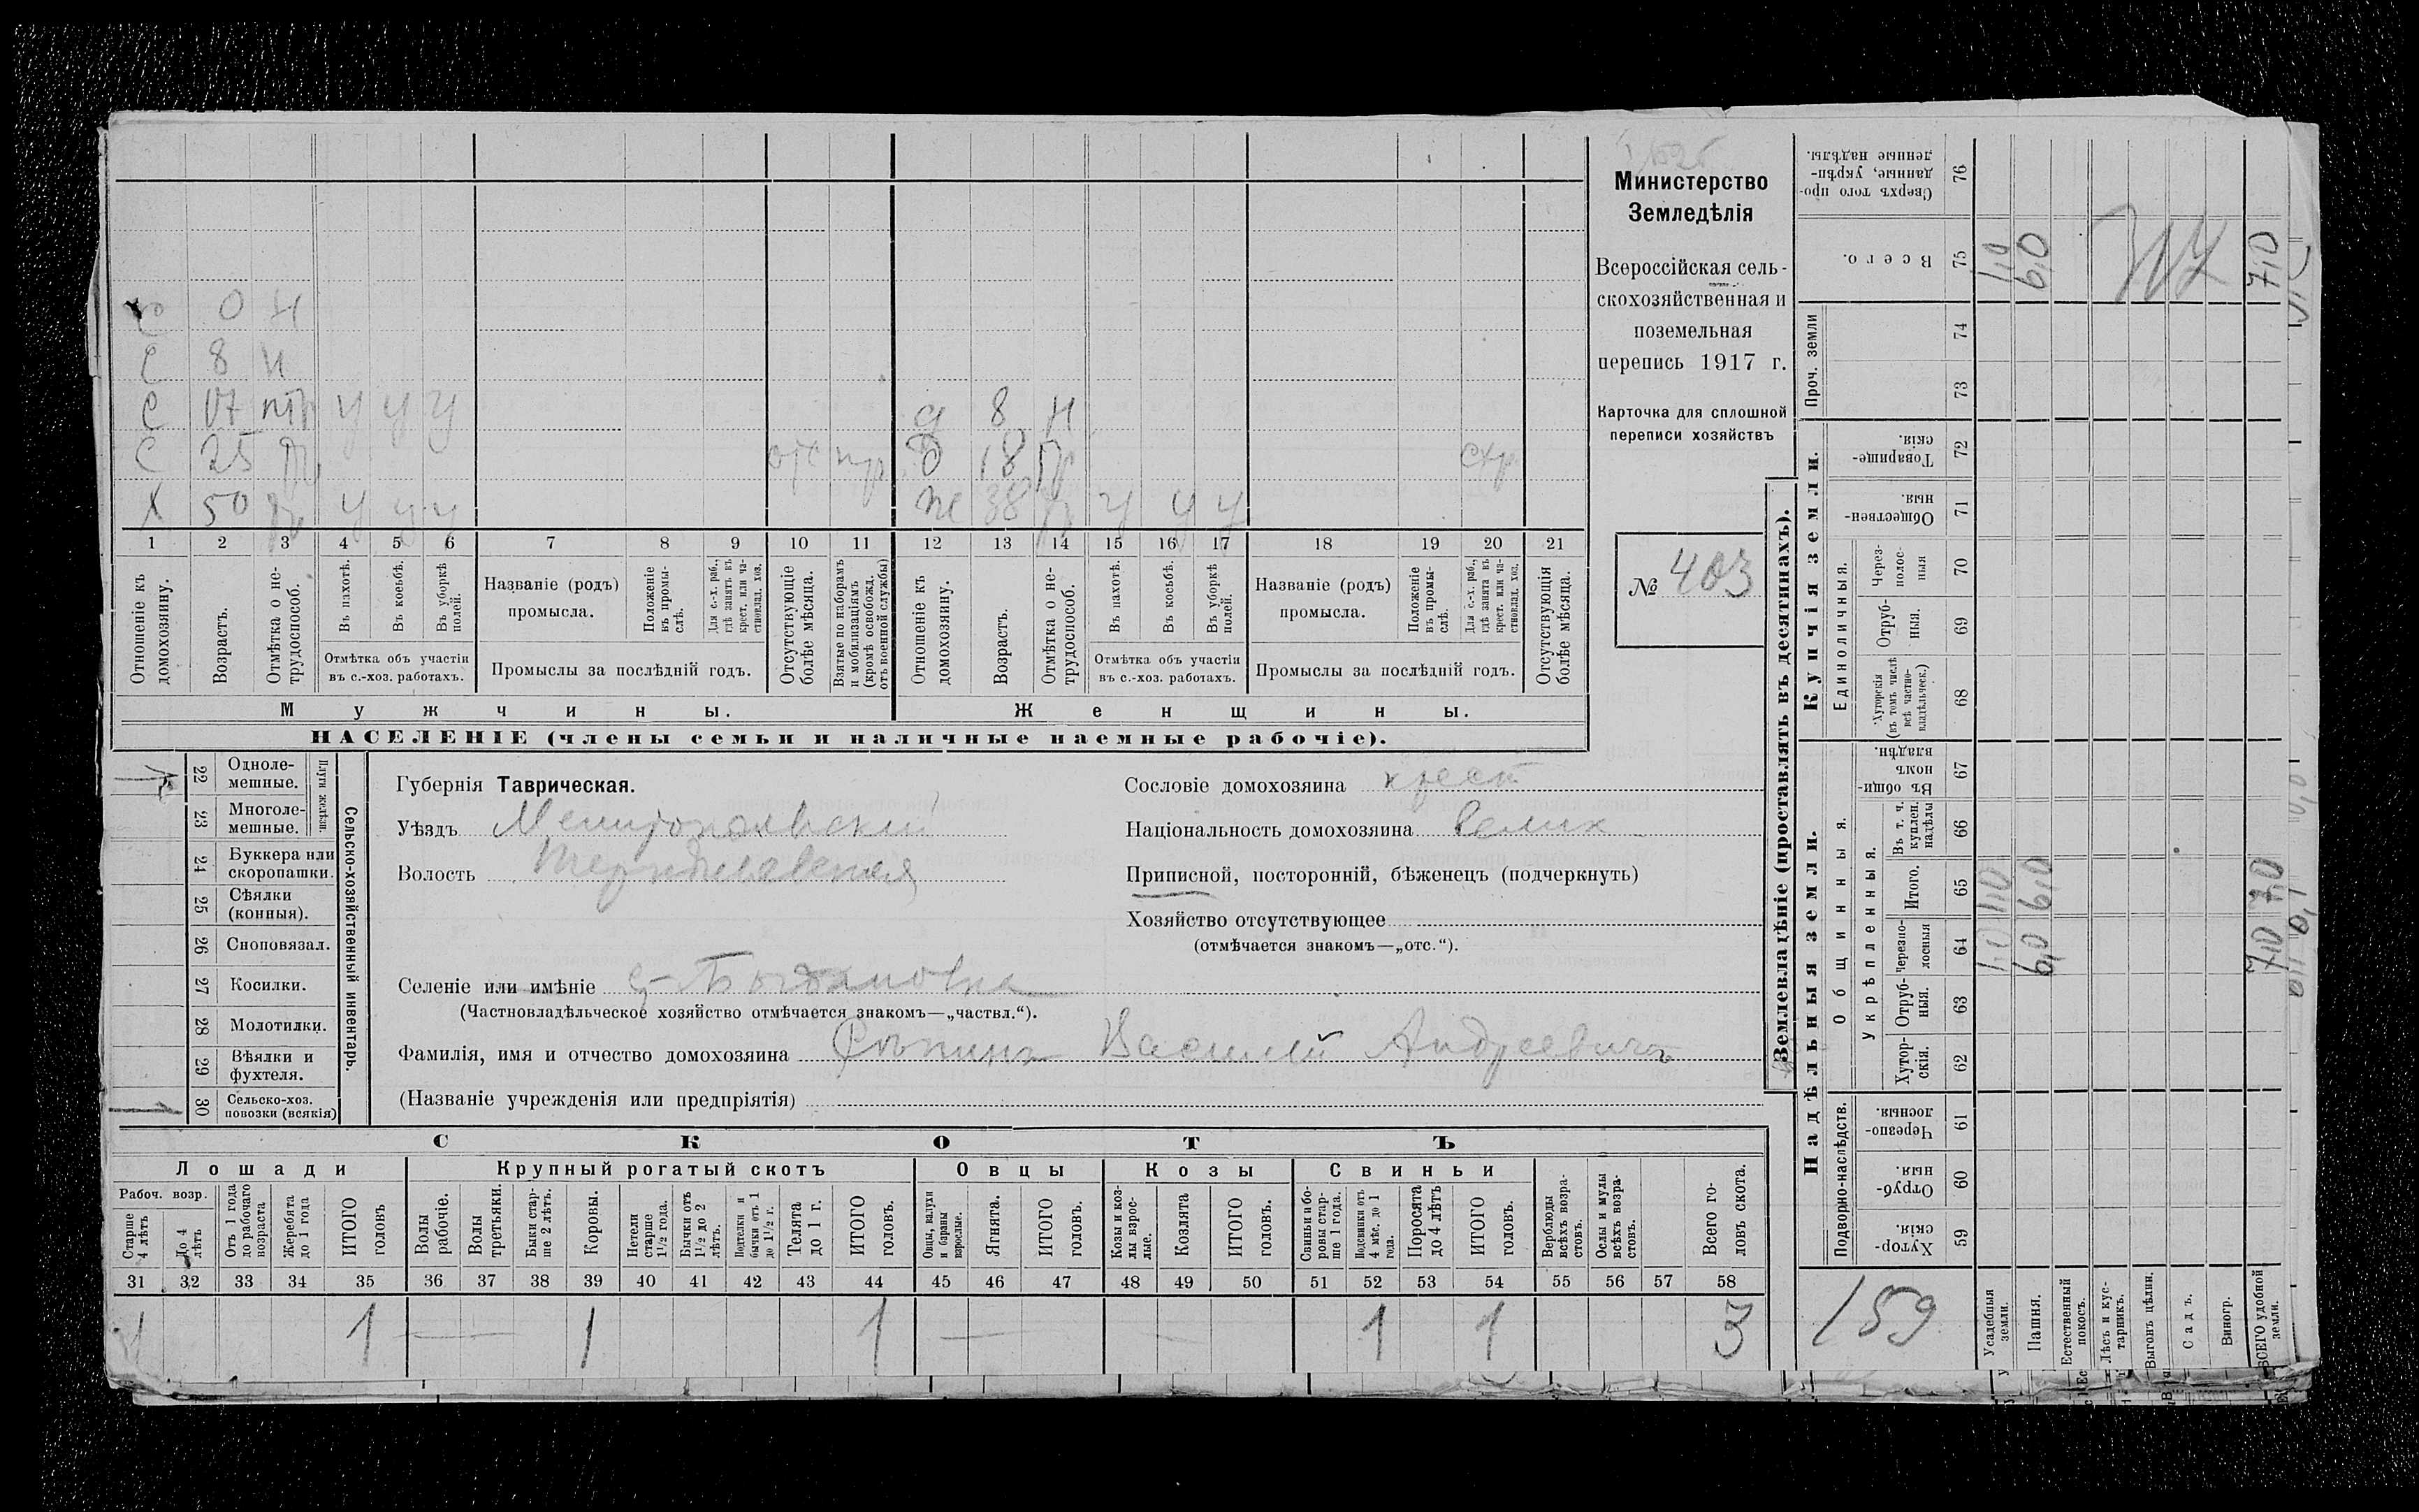 С 0 Н
С 8 Н
С 17 птр у у у
С 25 тр отс пр
Х 50 тр у у у
д 8 Н
д 18 тр
ж 38 тр у у у
1 2 3 4 5 6 7 8 9 10 11 12 13 14 15 16 17 18 19 20 21
Отношеніе къ домохозяину.
Возрастъ.
Отмѣтка о нетрудоспособ.
Въ пахотѣ.
Въ косьбѣ.
Въ уборкѣ полей.
Отмѣтка объ участіи въ с.-хоз. работахъ.
Названіе (родъ) промысла.
Положеніе въ промыслѣ.
Для с.-х. раб., гдѣ занятъ въ крест. или частновлад. хоз.
Промыслы за послѣдній годъ.
Отсутствующіе болѣе мѣсяца.
Взятые по наборамъ и мобилизаціямъ (кромѣ освобожд. отъ военной службы)
Отношеніе къ домохозяину.
Возрастъ.
Отмѣтка о нетрудоспособ.
Въ пахотѣ.
Въ косьбѣ.
Въ уборкѣ полей.
Отмѣтка объ участіи въ с.-хоз. работахъ.
Названіе (родъ) промысла.
Положеніе въ промыслѣ.
Для с.-х. раб., гдѣ занята въ крест. или частновлад. хоз.
Промыслы за послѣдній годъ.
Отсутствующія болѣе мѣсяца.
Мужчины.
Женщины.
НАСЕЛЕНІЕ (члены семьи и наличные наемные рабочіе).
Министерство
Земледѣлія
Всероссійская сель-
скохозяйственная и
поземельная
перепись 1917 г.
Карточка для сплошной
переписи хозяйствъ
№ 403
22 Однолемешные.
23 Многолемешные.
Плуги желѣзн.
24 Буккера или скоропашки.
25 Сѣялки (конныя).
26 Сноповязал.
27 Косилки.
28 Молотилки.
29 Вѣялки и фухтеля.
30 Сельско-хоз. повозки (всякія)
1
Сельско-хозяйственный инвентарь.
Губернія Таврическая.
Уѣздъ Мелитопольскій
Волость
Селеніе или имѣніе с. Богдановка
(Частновладѣльческое хозяйство отмѣчается знакомъ—„частвл.“).
Фамилія, имя и отчество домохозяина Василій Андреевичъ
(Названіе учрежденія или предпріятія)
Сословіе домохозяина крест
Національность домохозяина Велик
Приписной, посторонній, бѣженецъ (подчеркнуть)
Хозяйство отсутствующее
(отмѣчается знакомъ—„отс.“).
СКОТЪ
Лошади
Крупный рогатый скотъ
Овцы
Козы
Свиньи
Рабоч. возр.
Старше 4 лѣтъ
До 4 лѣтъ
Отъ 1 года до рабочаго возраста
Жеребята до 1 года
ИТОГО головъ
Волы рабочіе.
Волы третьяки.
Быки старше 2 лѣтъ.
Коровы.
Нетели старше 1½ года.
Бычки отъ 1½ до 2 лѣтъ.
Подтелки и бычки отъ 1 до 1½ г.
Телята до 1 г.
ИТОГО головъ.
Овцы, валухи и бараны взрослые.
Ягнята.
ИТОГО головъ.
Козы и козлы взрослые.
Козлята
ИТОГО головъ.
Свиньи и боровы старше 1 года.
Подсвинки отъ 4 мѣс. до 1 года.
Поросята до 4 лѣтъ
ИТОГО головъ.
Верблюды всѣхъ возрастовъ.
Ослы и мулы всѣхъ возрастовъ.
Всего головъ скота.
31 32 33 34 35 36 37 38 39 40 41 42 43 44 45 46 47 48 49 50 51 52 53 54 55 56 57 58
1 1 1 1 1 1 3
Землевладѣніе (проставлять въ десятинахъ).
Купчія земли.
Надѣльныя земли.
Сверхъ того проданные, укрѣпленные надѣлы. 76
Всего. 75 1,0 6,0 7,0
Проч. земли 74 73
Товарищескія. 72
Общественныя. 71
Единоличныя.
Черезполосныя 70
Отрубныя. 69
Хуторскія (въ томъ числѣ всѣ частновладѣльческ.) 68
Въ общинномъ владѣн. 67
Общинныя.
Укрѣпленныя.
Въ т. ч. куплен. надѣлы 66
Итого. 65 1,0 6,0 7,0
Черезполосныя 64 1,0 6,0 7,0
Отрубныя. 63
Хуторскія. 62
Подворно-наслѣдств.
Черезполосныя. 61
Отрубныя. 60
Хуторскія. 59
159
Усадебныя земли.
Пашня.
Естественный покосъ.
Лѣсъ и кустарникъ.
Выгонъ цѣлин.
Садъ.
Виногр.
ВСЕГО удобной земли.